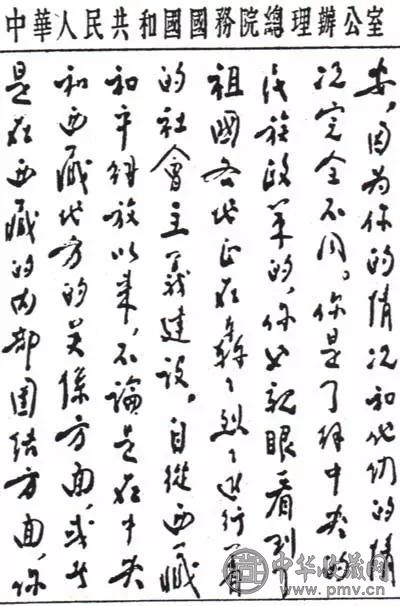 中華人民共和國國務院總理辦公室
安，因为你的情况和他们的情
况完全不同。你是了解中央的
民族政策的，你也親眼看到
祖國各地正在轟々烈々进行着
的社會主義建設。自從西藏
和平解放以来，不論是在中央
和西藏地方的关係方面，或者
是在西藏的内部团结方面，你
中华收藏网
www.pmv.cn